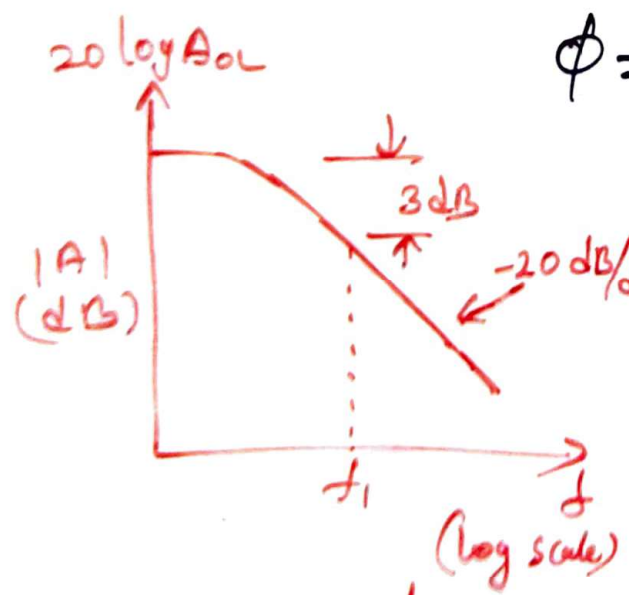 20 log AOL
ϕ =
3dB
|A|
(dB)
-20 dB/d
f1
f
(log scale)